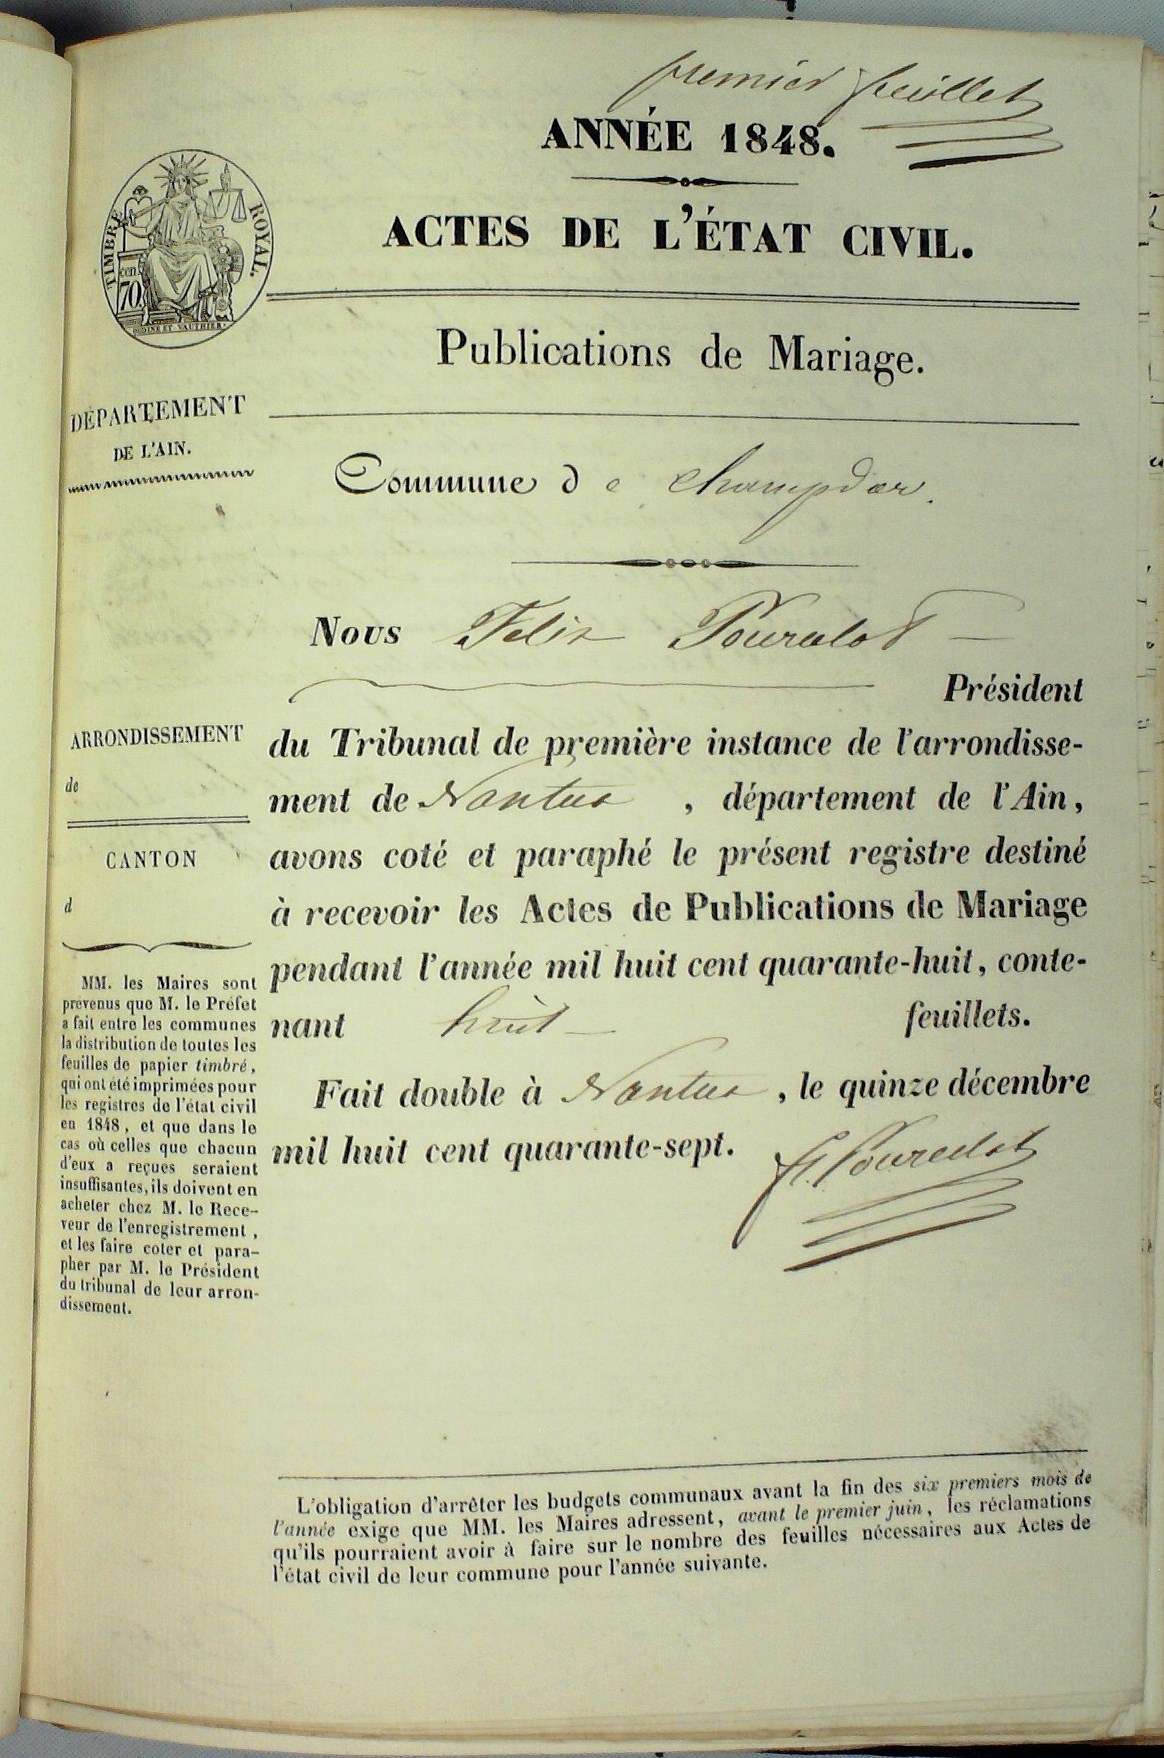 premier feuillet
ANNÉE 1848.
ACTES DE L'ÉTAT CIVIL.
TIMBRE ROYAL.
cen. 70
Publications de Mariage.
DÉPARTEMENT
DE L'AIN.
Commune de champdor.
Nous Felix Pourcelot
Président
du Tribunal de première instance de l'arrondisse-
ment de Nantua, département de l'Ain,
avons coté et paraphé le présent registre destiné
à recevoir les Actes de Publications de Mariage
pendant l'année mil huit cent quarante-huit, conte-
nant huit feuillets.
Fait double à Nantua, le quinze décembre
mil huit cent quarante-sept.
ARRONDISSEMENT
de
CANTON
d
MM. les Maires sont
prévenus que M. le Préfet
a fait entre les communes
la distribution de toutes les
feuilles de papier timbré,
qui ont été imprimées pour
les registres de l'état civil
en 1848, et que dans le
cas où celles que chacun
d'eux a reçues seraient
insuffisantes, ils doivent en
acheter chez M. le Rece-
veur de l'enregistrement,
et les faire coter et para-
pher par M. le Président
du tribunal de leur arron-
dissement.
L'obligation d'arrêter les budgets communaux avant la fin des six premiers mois de
l'année exige que MM. les Maires adressent, avant le premier juin, les réclamations
qu'ils pourraient avoir à faire sur le nombre des feuilles nécessaires aux Actes de
l'état civil de leur commune pour l'année suivante.